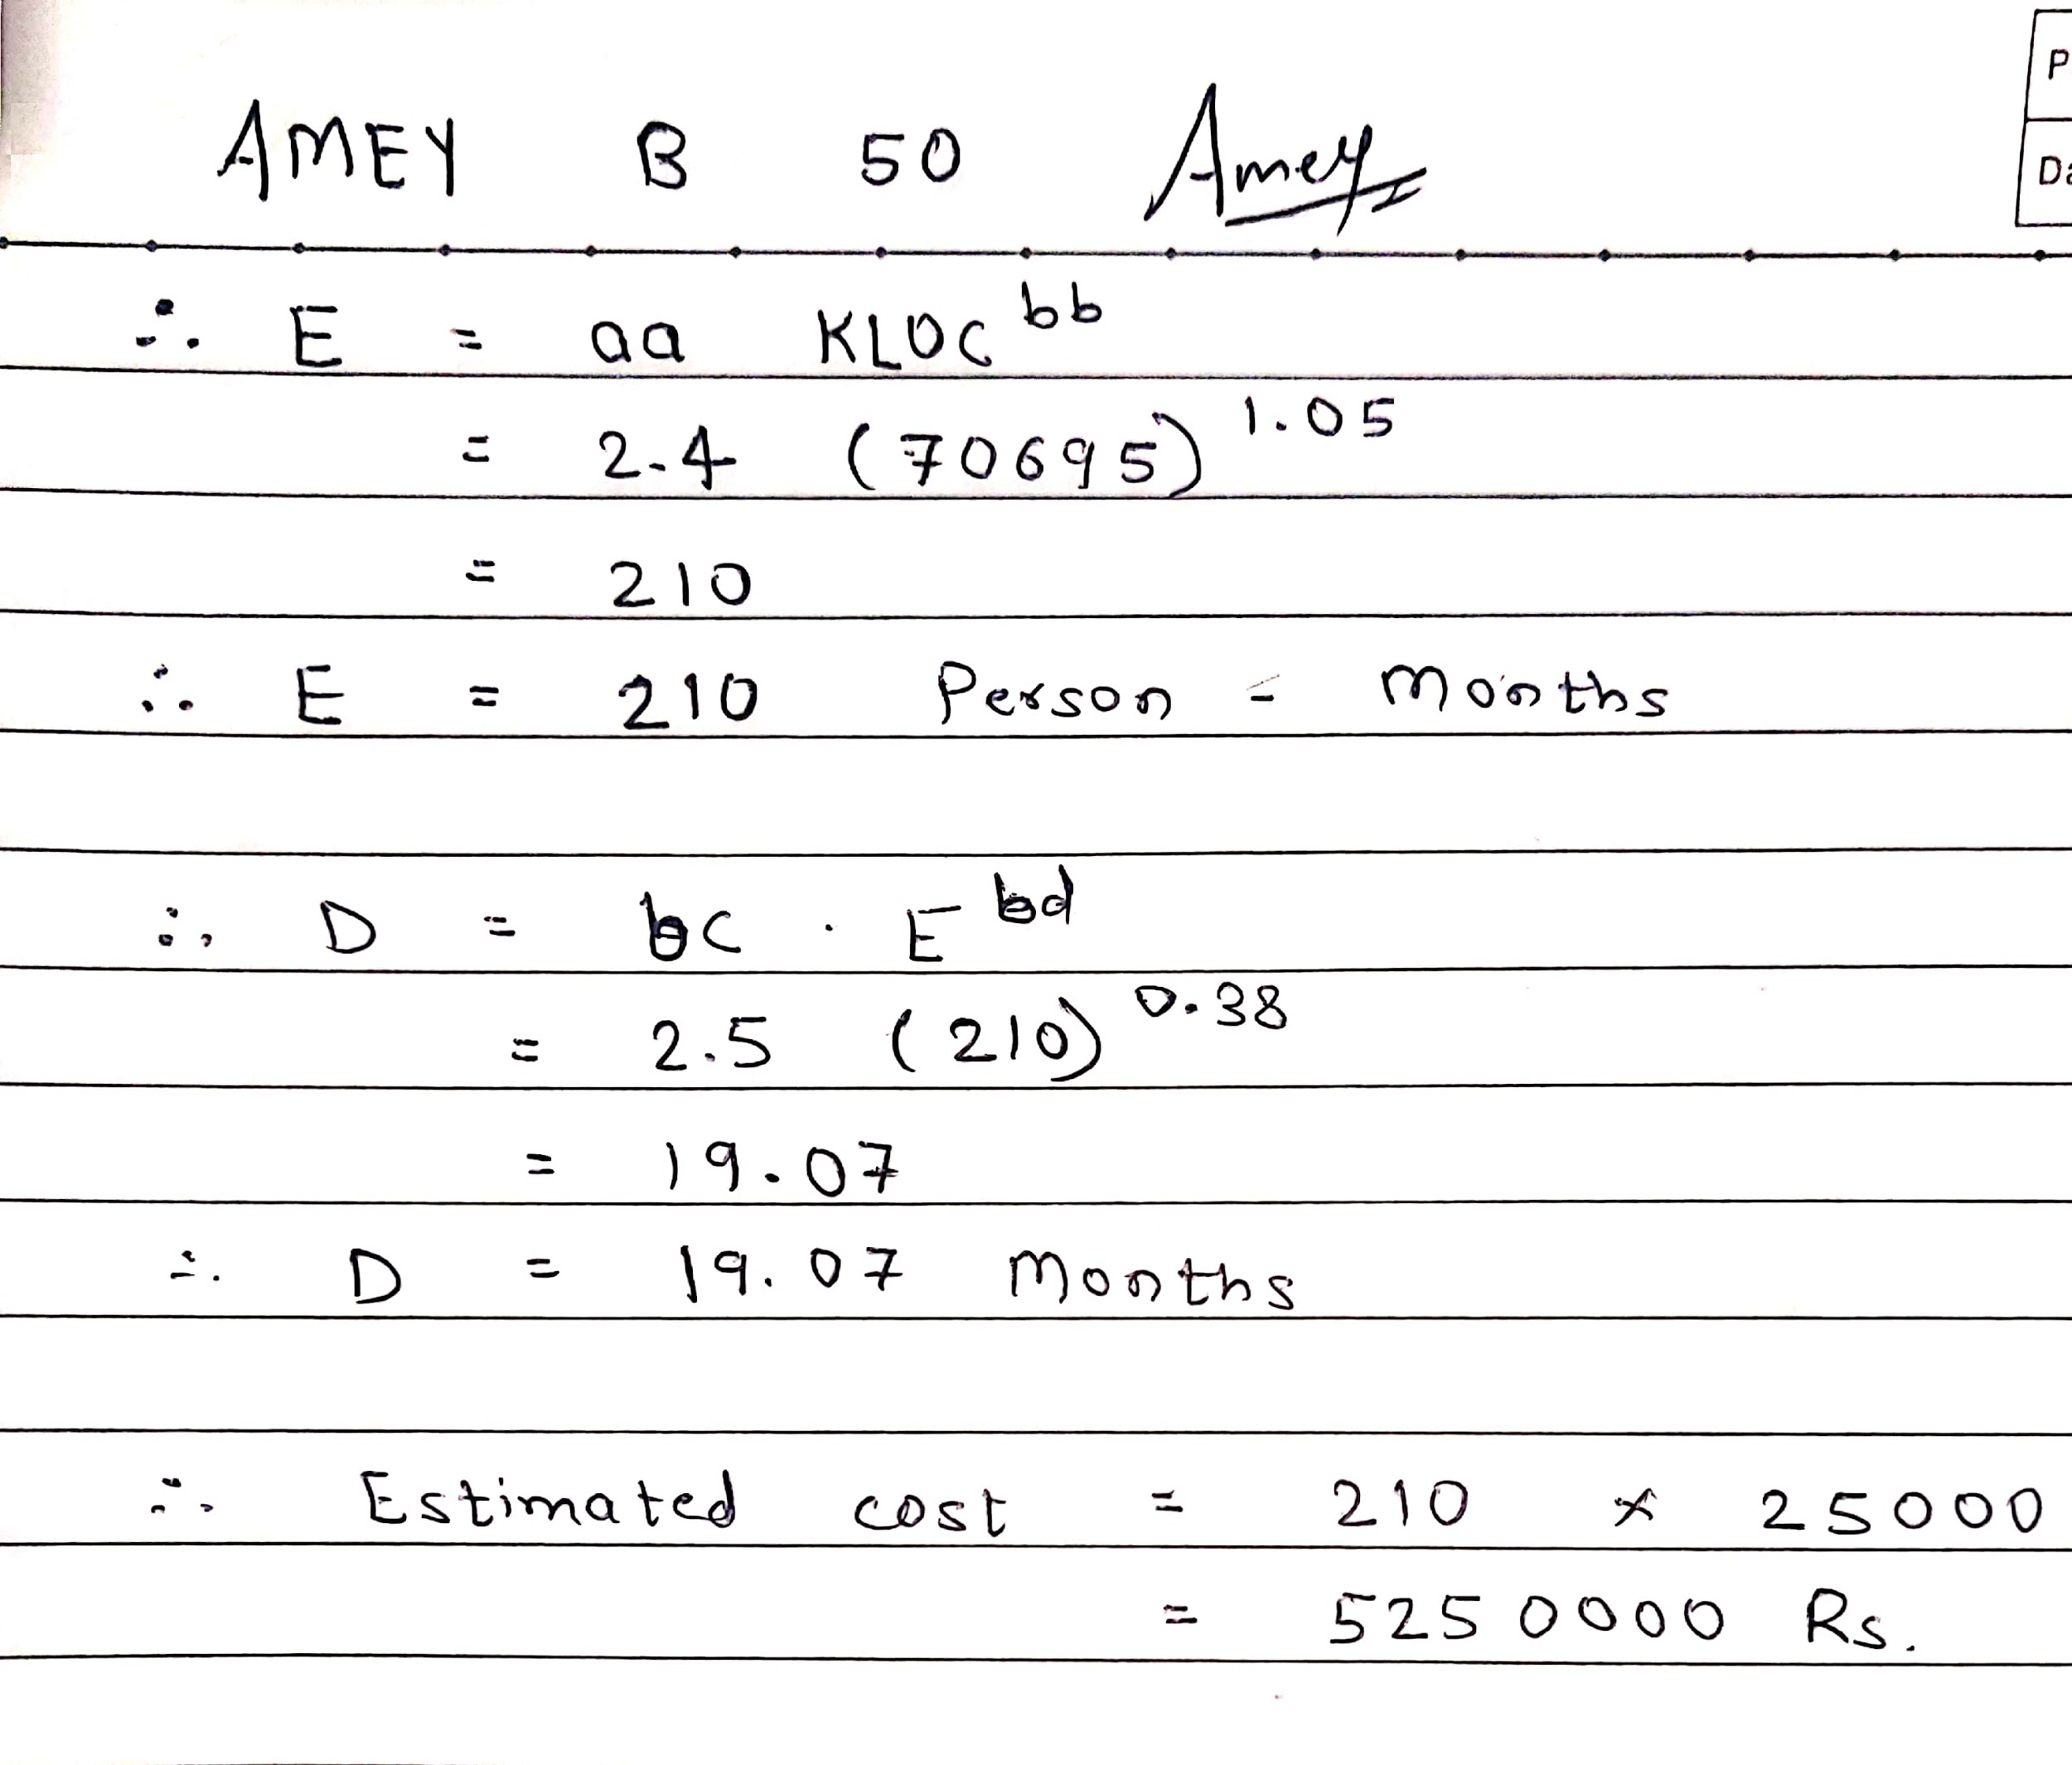 P
Da
AMEY B 50 Amey
∴ E = aa KLOC^bb
= 2.4 (70695)^1.05
= 210
∴ E = 210 Person - Months
∴ D = bc . E^bd
= 2.5 (210)^0.38
= 19.07
∴ D = 19.07 Months
∴ Estimated cost = 210 * 25000
= 5250000 Rs.